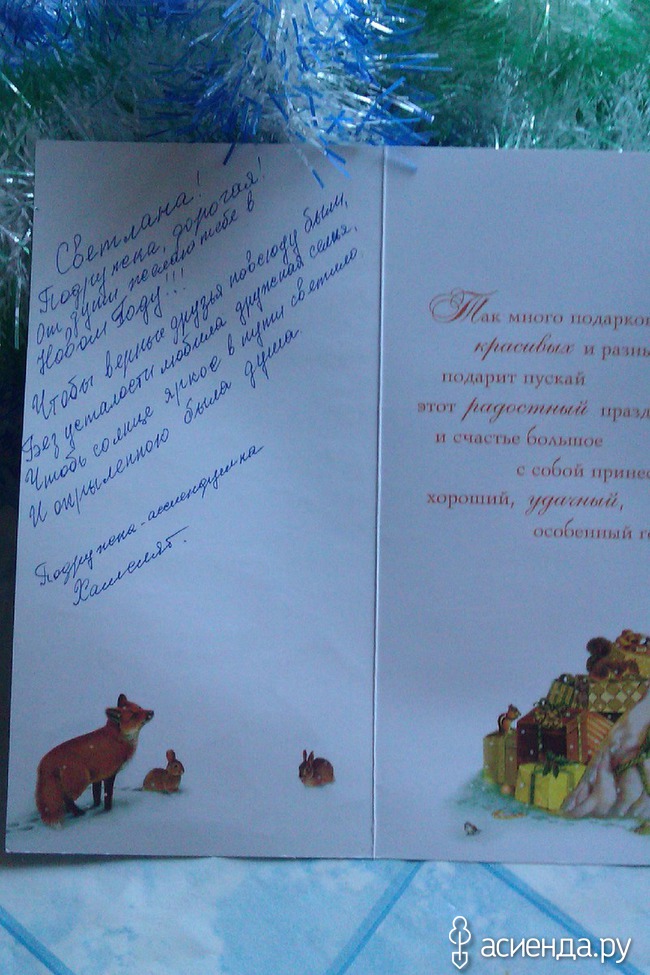 Светлана!
Подружена, дорогая!
От души желаю тебе в
Новом Году!!!
Чтобы верные друзья повсюду были,
Без усталости любила дружная семья,
Чтоб солнце яркое в пути светило
И окрыленною была душа.
Подружена-асиендушка
Так много подарков
красивых и разны
подарит пускай
этот радостный празд
и счастье большое
с собой принес
хороший, удачный,
особенный го
асиенда.ру